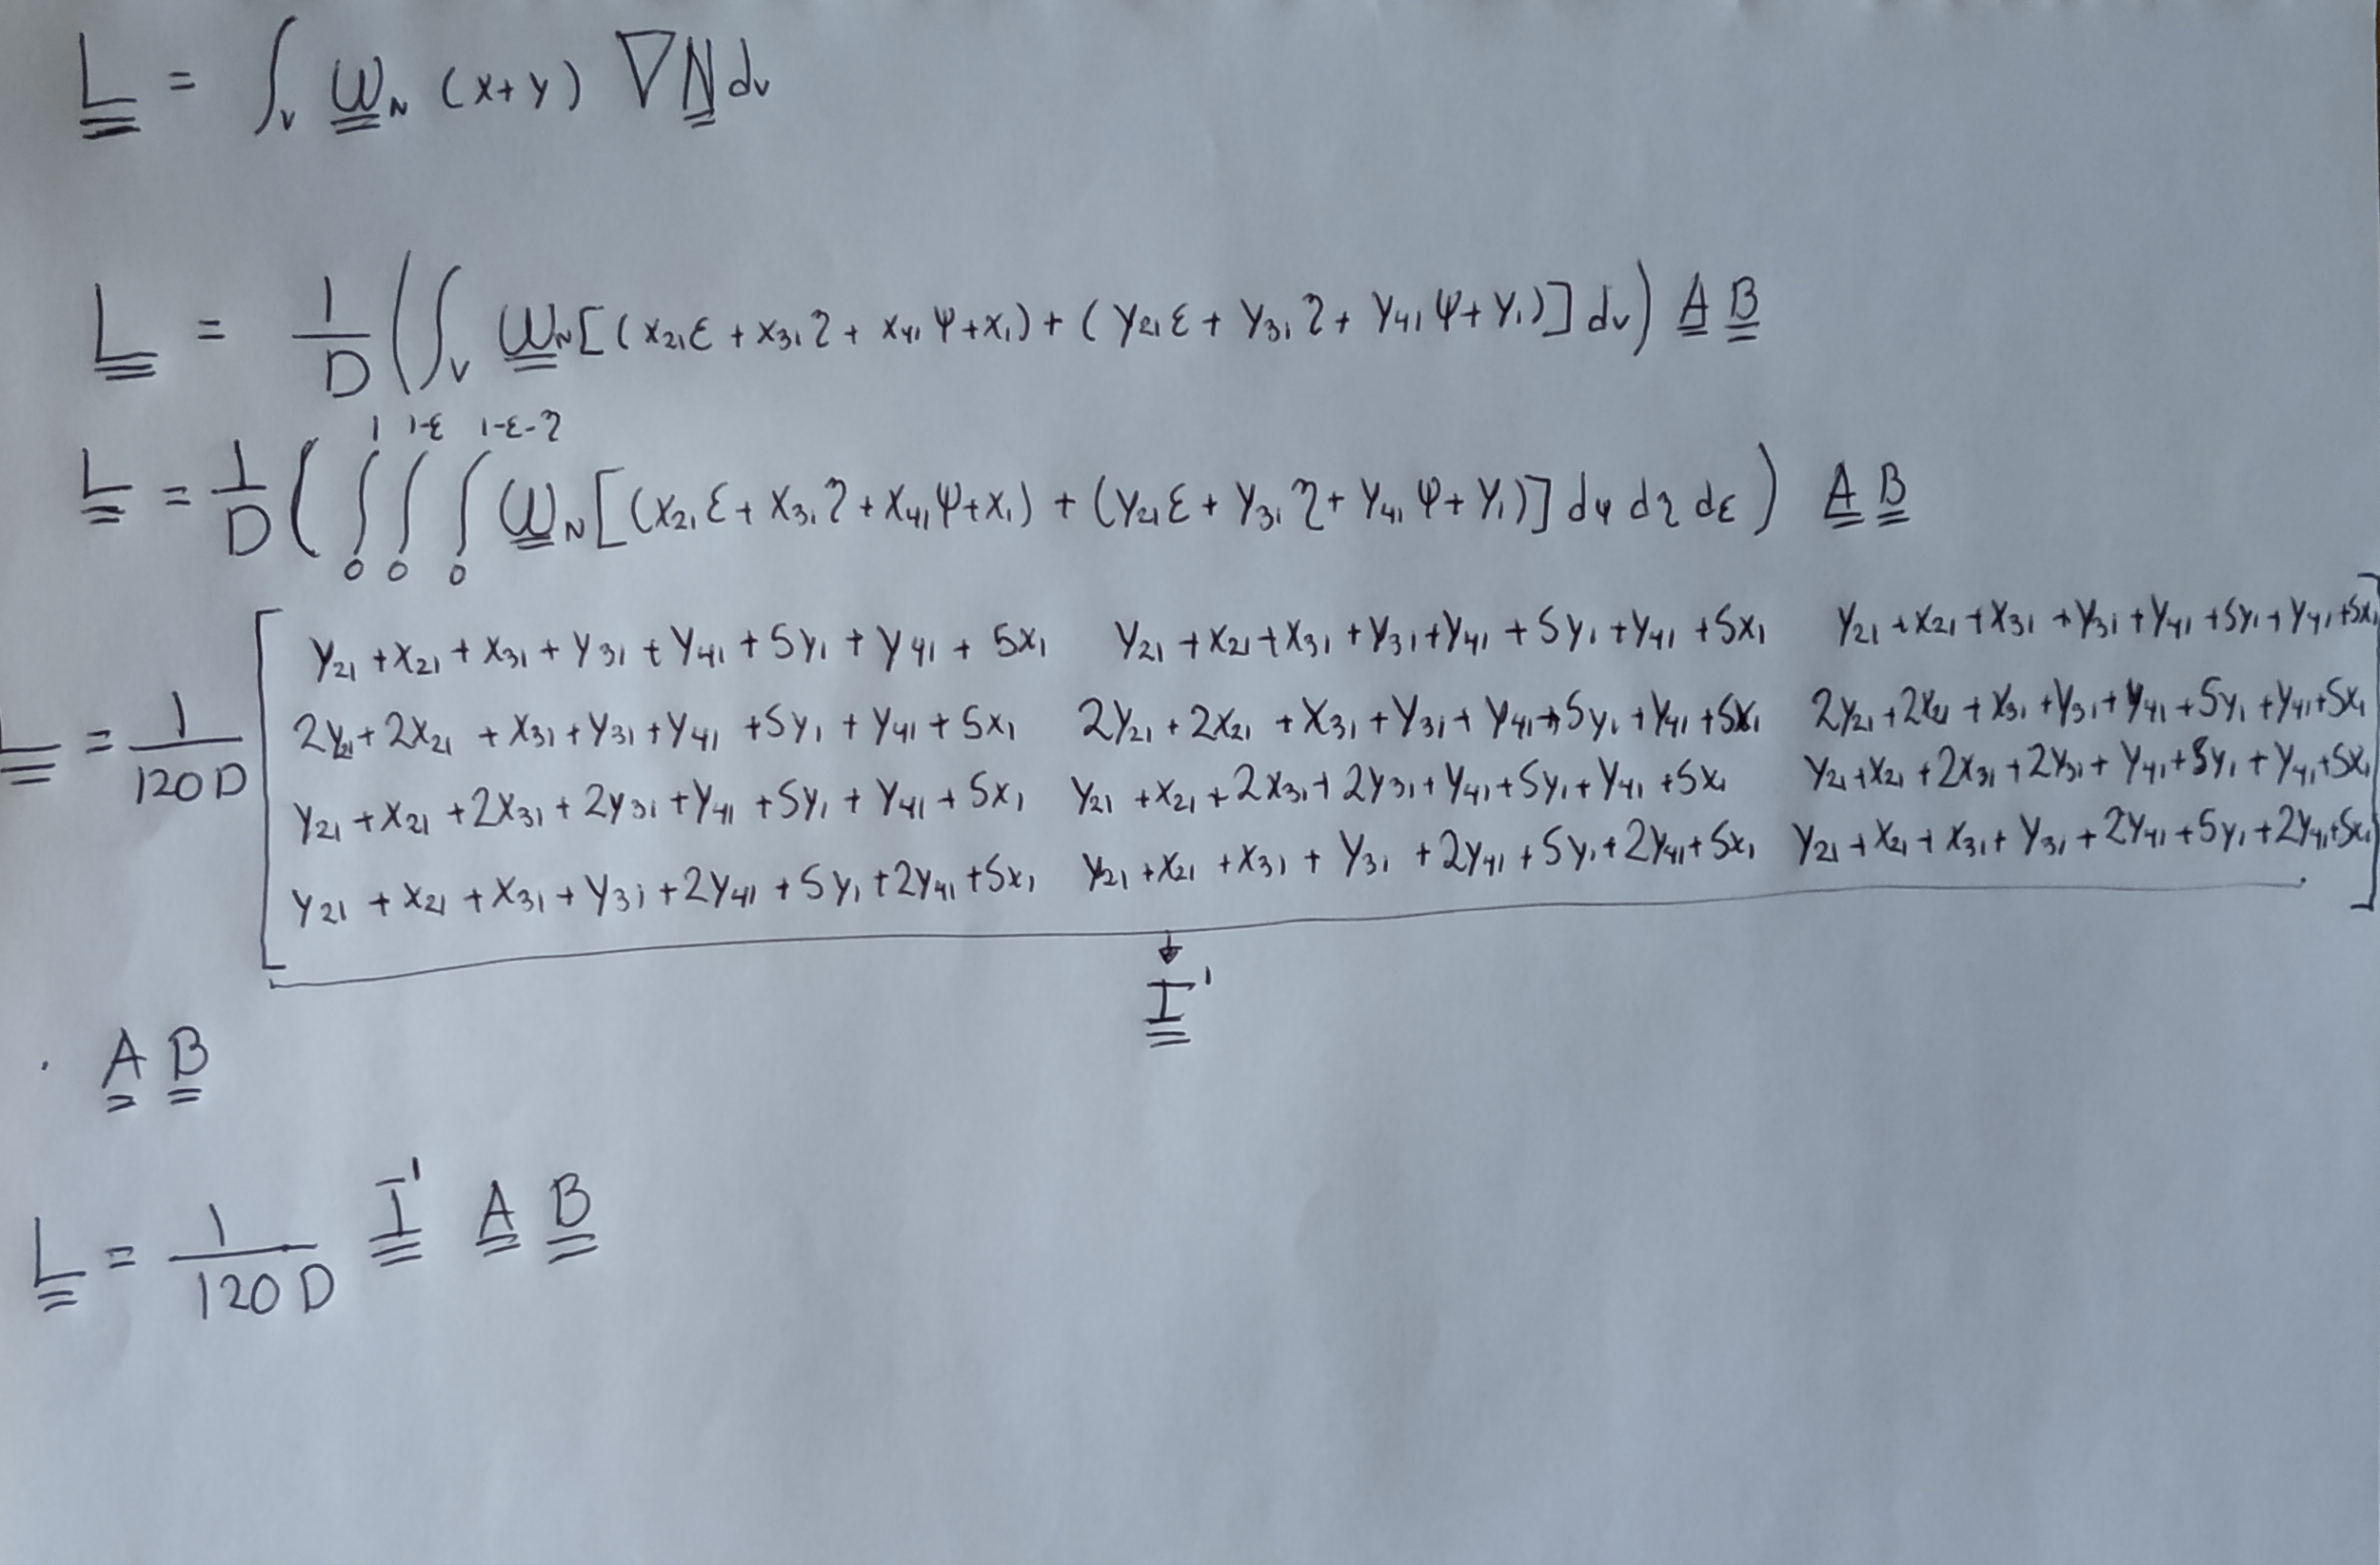 L = ∫ᵥ ω_N (x+y) ∇N dv
L = 1/D (∫ᵥ ω_N [(x₂₁ε + x₃₁η + x₄₁ψ + x₁) + (y₂₁ε + y₃₁η + y₄₁ψ + y₁)] dv) A B
L = 1/D (∫₀¹ ∫₀^(1-ε) ∫₀^(1-ε-η) ω_N [(x₂₁ε + x₃₁η + x₄₁ψ + x₁) + (y₂₁ε + y₃₁η + y₄₁ψ + y₁)] dψ dη dε) A B
y₂₁ + x₂₁ + x₃₁ + y₃₁ + y₄₁ + 5y₁ + y₄₁ + 5x₁ y₂₁ + x₂₁ + x₃₁ + y₃₁ + y₄₁ + 5y₁ + y₄₁ + 5x₁ y₂₁ + x₂₁ + x₃₁ + y₃₁ + y₄₁ + 5y₁ + y₄₁ + 5x₁
L = 1/120D [ 2y₂₁ + 2x₂₁ + x₃₁ + y₃₁ + y₄₁ + 5y₁ + y₄₁ + 5x₁ 2y₂₁ + 2x₂₁ + x₃₁ + y₃₁ + y₄₁ + 5y₁ + y₄₁ + 5x₁ 2y₂₁ + 2x₂₁ + x₃₁ + y₃₁ + y₄₁ + 5y₁ + y₄₁ + 5x₁ ]
y₂₁ + x₂₁ + 2x₃₁ + 2y₃₁ + y₄₁ + 5y₁ + y₄₁ + 5x₁ y₂₁ + x₂₁ + 2x₃₁ + 2y₃₁ + y₄₁ + 5y₁ + y₄₁ + 5x₁ y₂₁ + x₂₁ + 2x₃₁ + 2y₃₁ + y₄₁ + 5y₁ + y₄₁ + 5x₁
y₂₁ + x₂₁ + x₃₁ + y₃₁ + 2y₄₁ + 5y₁ + 2y₄₁ + 5x₁ y₂₁ + x₂₁ + x₃₁ + y₃₁ + 2y₄₁ + 5y₁ + 2y₄₁ + 5x₁ y₂₁ + x₂₁ + x₃₁ + y₃₁ + 2y₄₁ + 5y₁ + 2y₄₁ + 5x₁
I'
· A B
L = 1/120D I' A B